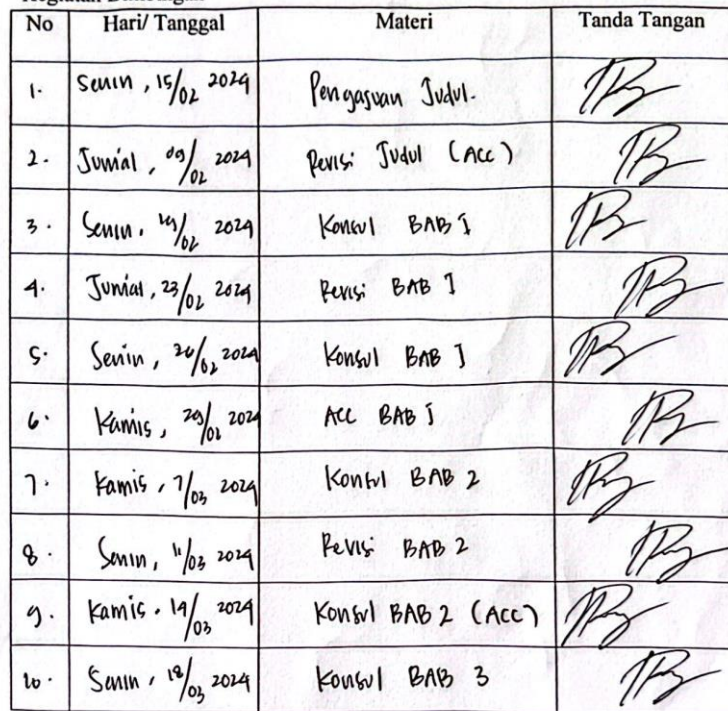 No Hari/ Tanggal Materi Tanda Tangan
1. Senin, 15/02 2024 Pengajuan Judul.
2. Jum'at, 09/02 2024 Revisi Judul (Acc)
3. Senin, /02 2024 Konsul BAB I
4. Jum'at, 23/02 2024 Revisi BAB I
5. Senin, 26/02 2024 Konsul BAB I
6. Kamis, 29/02 2024 ACC BAB I
7. Kamis, 7/03 2024 Konsul BAB 2
8. Senin, 11/03 2024 Revisi BAB 2
9. Kamis, 14/03 2024 Konsul BAB 2 (ACC)
10. Senin, 18/03 2024 Konsul BAB 3